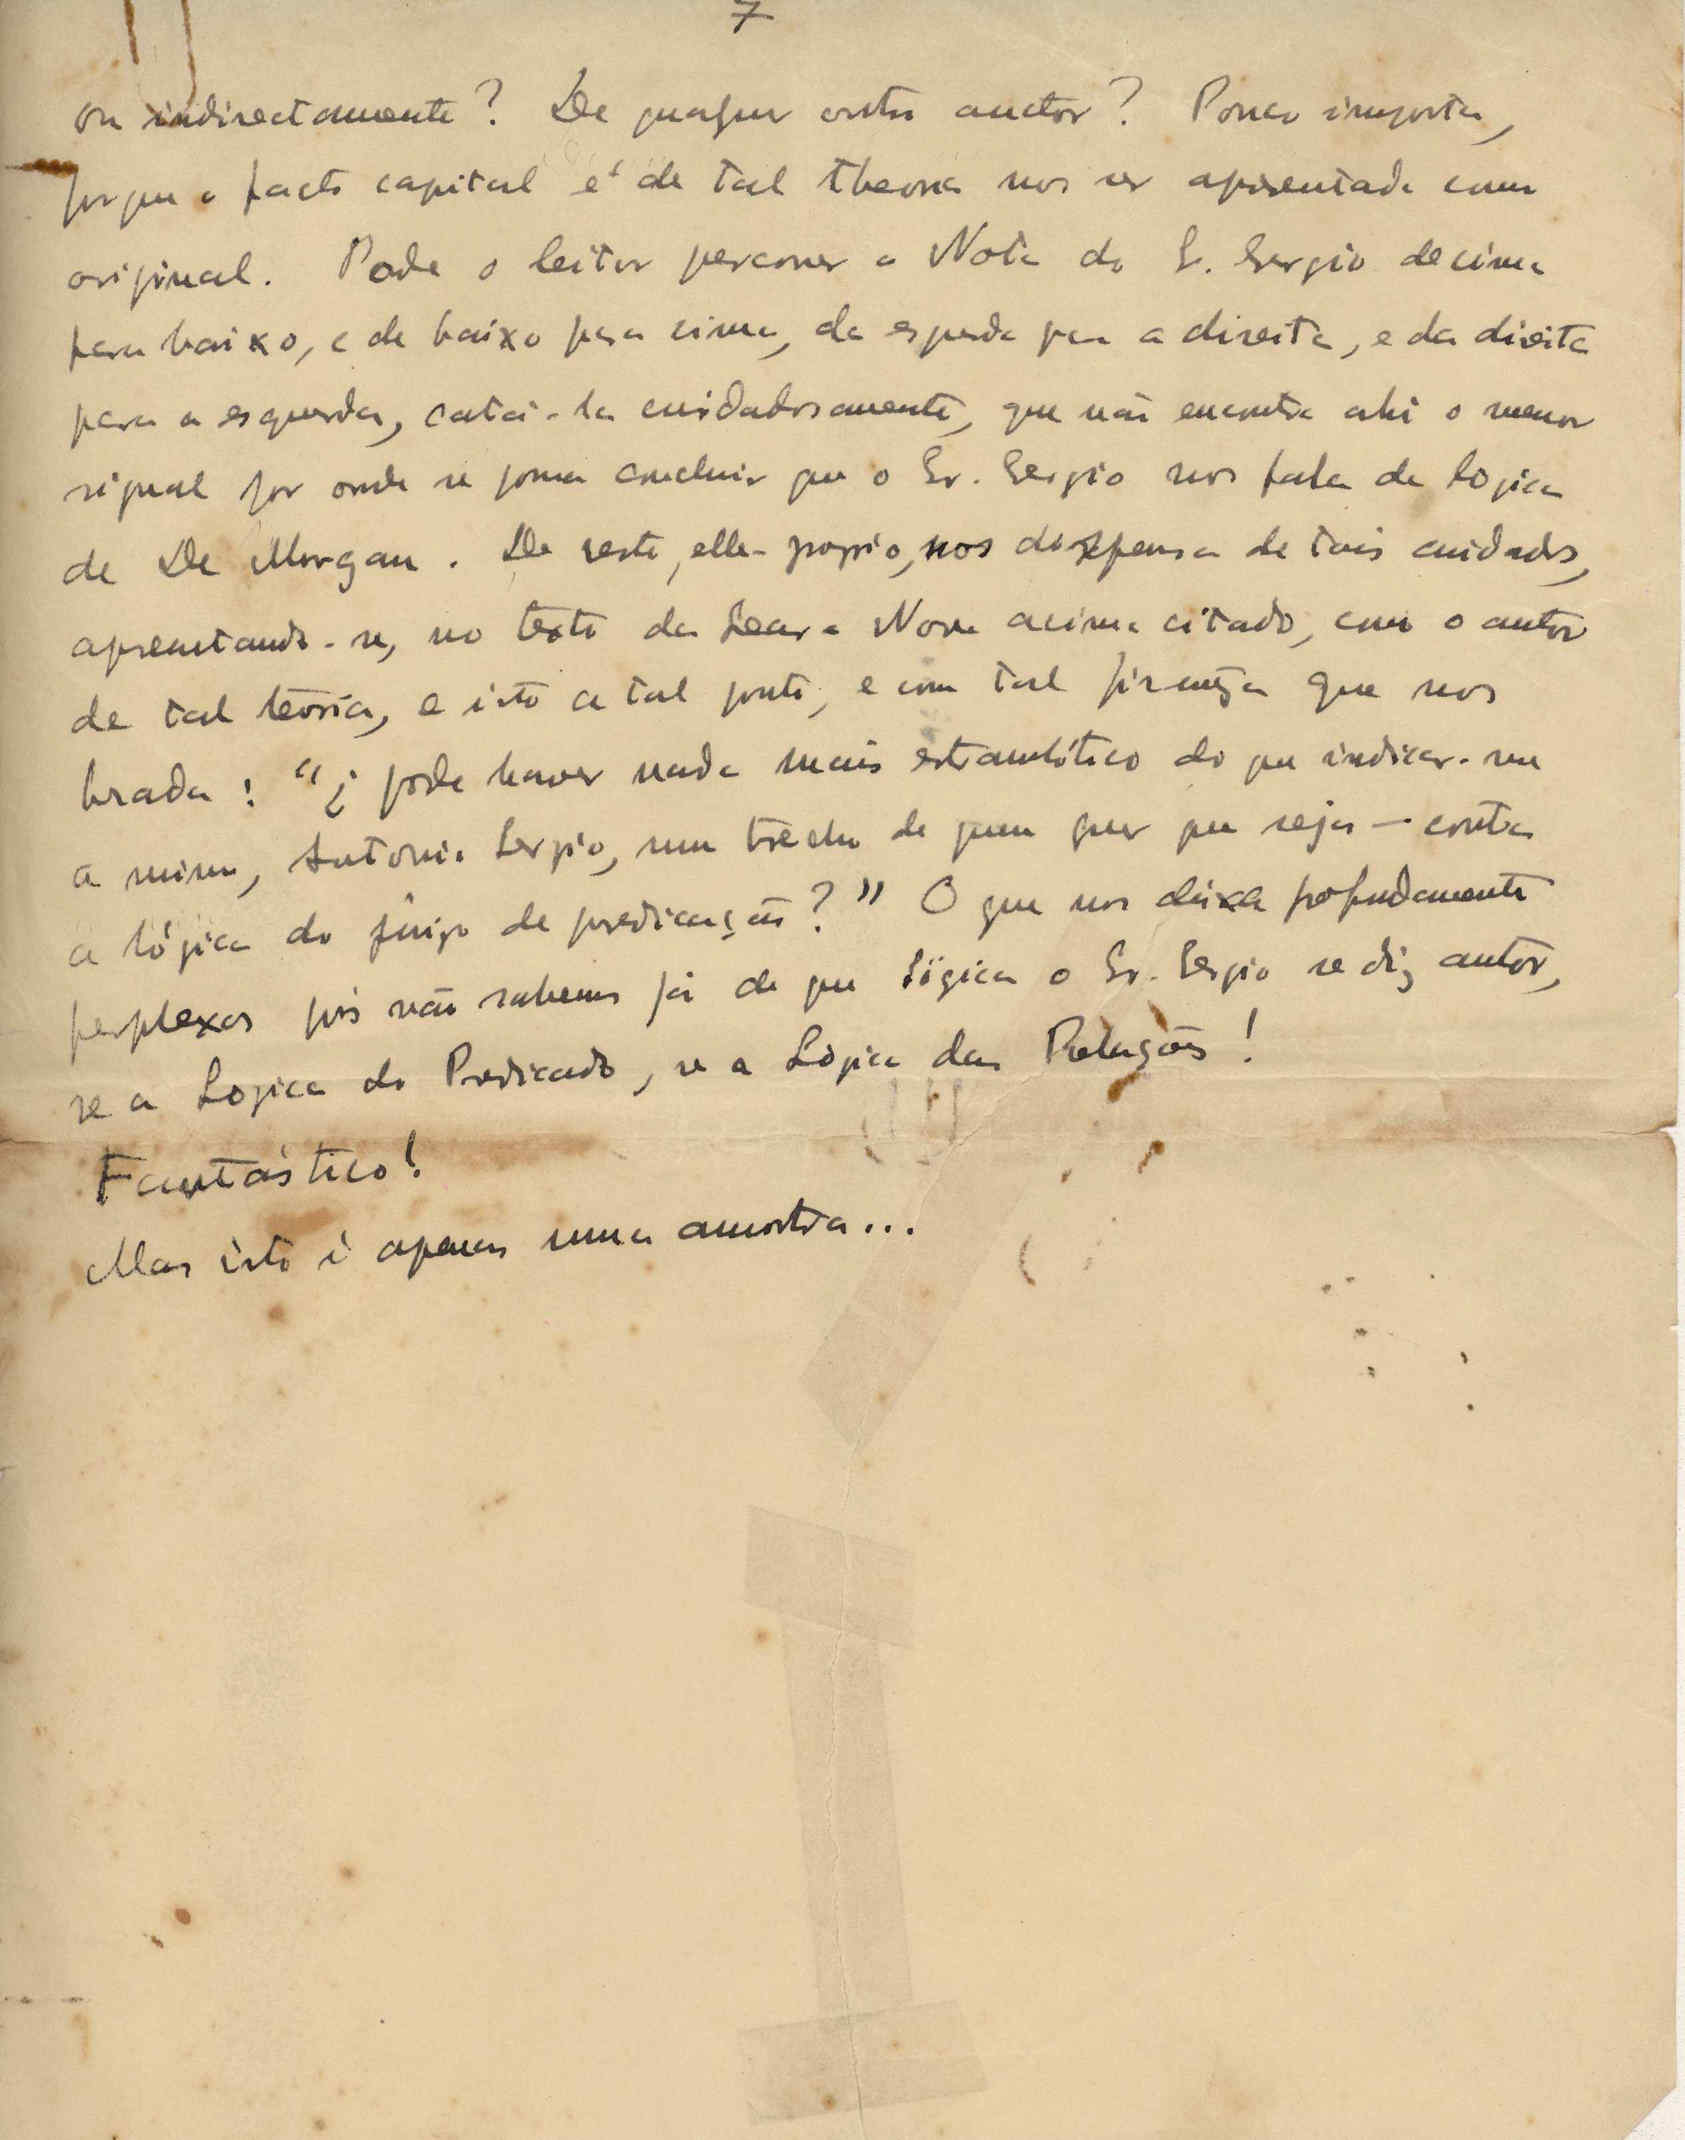 7
ou indirectamente? De qualquer outro auctor? Pouco importa,
porque o facto capital é de tal theoria nos ser apresentada como
original. Pode o leitor percorrer a Nota do Sr. Sergio de cima
para baixo, e de baixo para cima, da esquerda para a direita, e da direita
para a esquerda, catá-la cuidadosamente, que não encontra ahi o menor
signal por onde se possa concluir que o Sr. Sergio nos fala da lógica
de De Morgan. De resto, elle-proprio, nos dispensa de tais cuidados,
apresentando-se, no texto da Seara Nova acima citado, como o autor
de tal teoria, e isto a tal ponto, e com tal firmeza que nos
brada: "¿pode haver nada mais estrambótico do que indicar-me
a mim, Antonio Sergio, um trecho de quem quer que seja — contra
a lógica do juizo de predicação?" O que nos deixa profundamente
perplexos pois não sabemos já de que lógica o Sr. Sergio se diz autor,
se a Logica do Predicado, se a Lógica das Relações!
Fantástico!
Mas isto é apenas uma amostra...